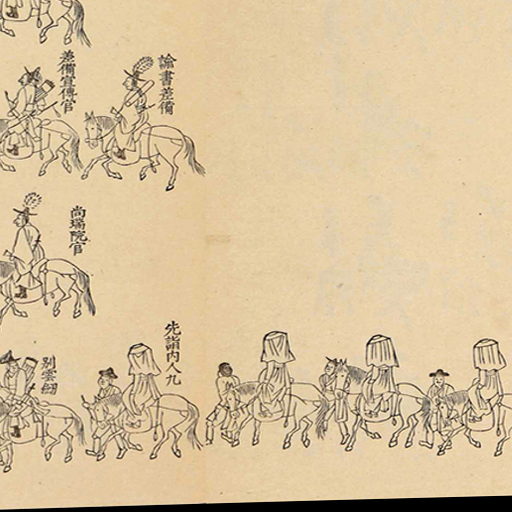 諭書差備
差備宣傳官
尚瑞院官
先詣內人九
別雲劒